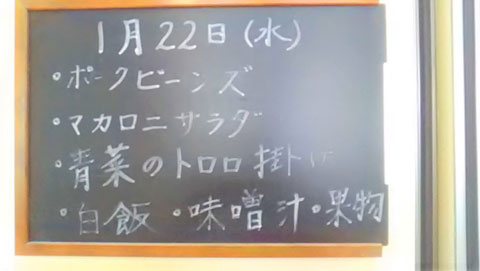 1月22日(水)
・ポークビーンズ
・マカロニサラダ
・青菜のトロロ掛け
・白飯・味噌汁・果物